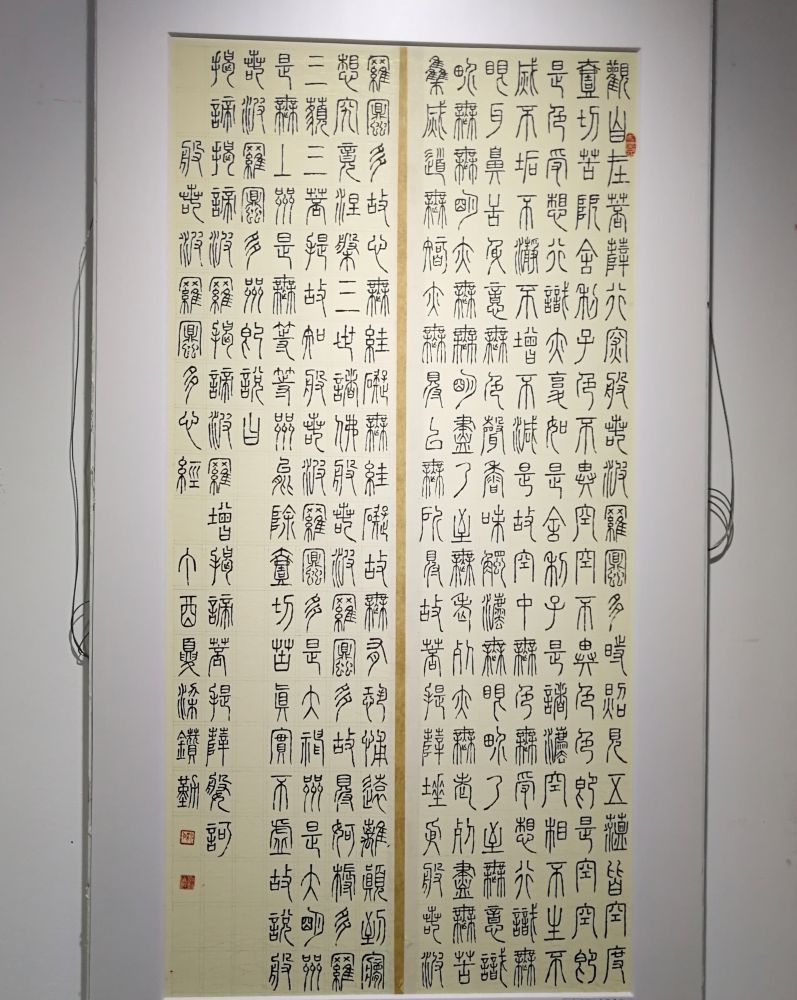 觀自在菩薩行深般若波羅蜜多時照見五蘊皆空度
壹切苦厄舍利子色不異空空不異色色即是空空即
是色受想行識亦復如是舍利子是諸法空相不生不
滅不垢不淨不增不減是故空中無色無受想行識無
眼耳鼻舌身意無色聲香味觸法無眼界乃至無意識
界無無明亦無無明盡乃至無老死亦無老死盡無苦
集滅道無智亦無得以無所得故菩提薩埵依般若波
羅蜜多故心無罣礙無罣礙故無有恐怖遠離顛倒夢
想究竟涅槃三世諸佛般若波羅蜜多故得阿耨多羅
三藐三菩提故知般若波羅蜜多是大神咒是大明咒
是無上咒是無等等咒能除壹切苦真實不虛故說般
若波羅蜜多咒即說曰
揭諦揭諦波羅揭諦波羅增揭諦菩提薩婆訶
般若波羅蜜多心經 丁酉夏梁鑽勤